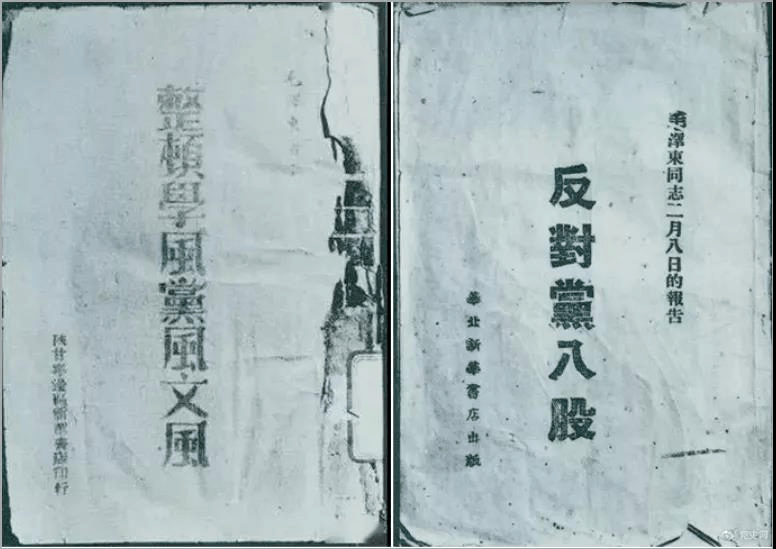 毛澤東
整頓學風黨風文風
陕甘寧邊區新華書店印行
毛澤東同志二月八日的報告
反對黨八股
華北新華書店出版
党史网